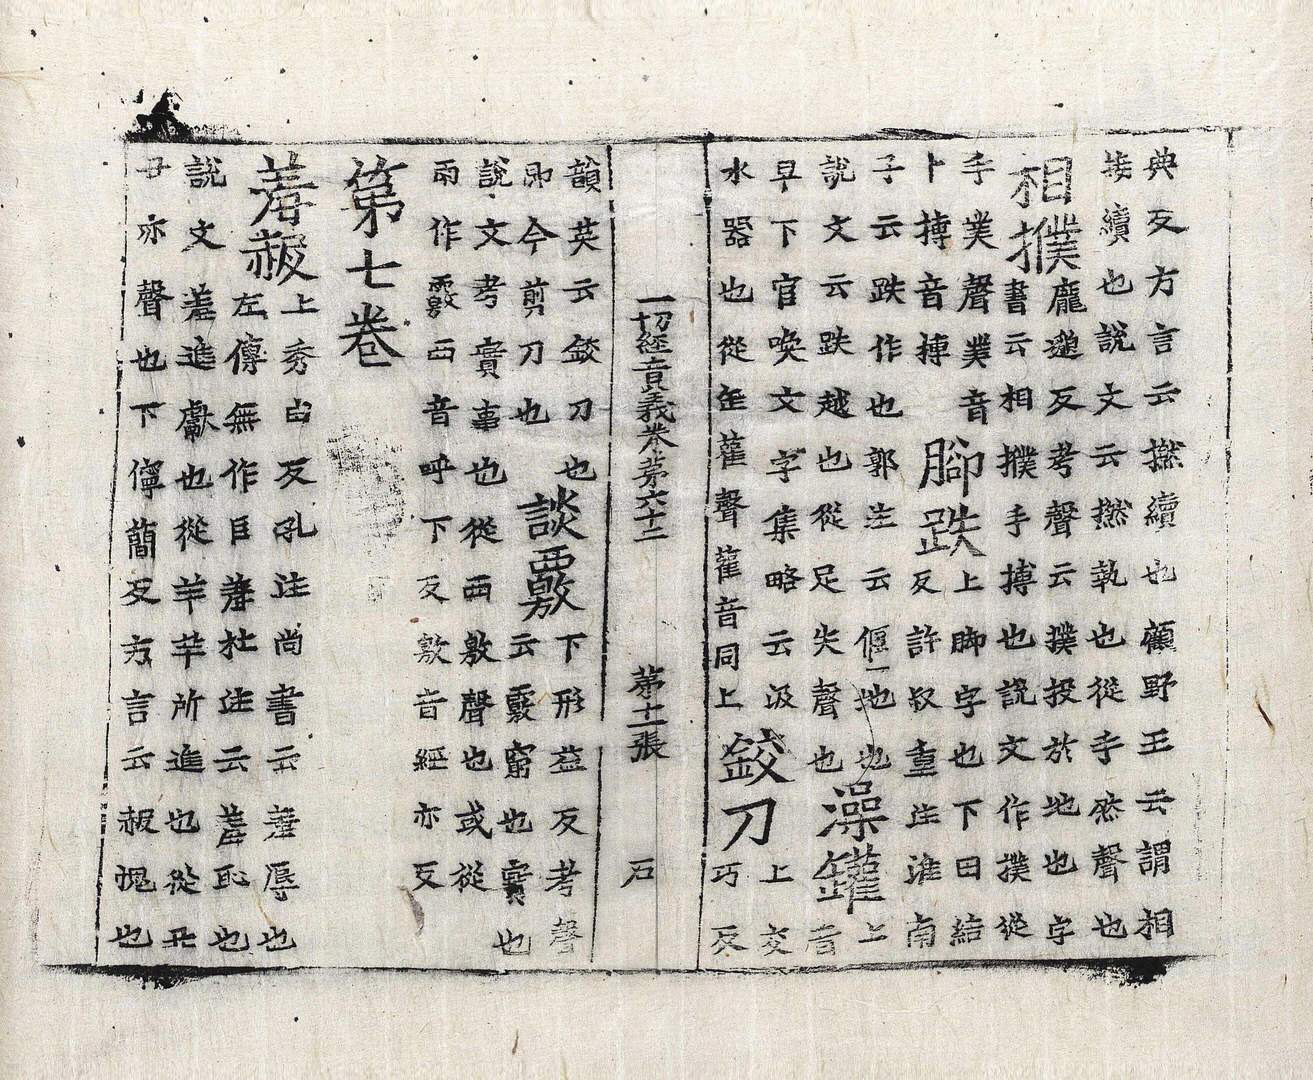 典反方言云撚續也顧野王云謂相
接續也說文云撚執也從手然聲也
相撲
龐邈反考聲云撲投於地也字
書云相撲手搏也說文作撲從
手菐聲菐音
卜搏音博
腳跌
上脚字也下田結
反許叔重注淮南
子云跌作也郭注云偃地也
說文云跌越也從足失聲也
澡鑵
上音
早下官喚文字集略云汲
水器也從缶雚聲雚音同上
鉸刀
上交
巧反
一切經音義卷苐六十二 苐十一張 石
韻英云鉸刀也
即今剪刀也
談覈
下形益反考聲
云覈窮也實也
說文考實事也從襾敫聲也或從
雨作覈襾音呼下反敫音經亦反
第七卷
羞赧
上秀由反孔注尚書云羞辱也
左傳無作臣羞杜注云羞恥也
說文羞進獻也從羊羊所進也從丑
丑亦聲也下儜蕳反方言云赧愧也